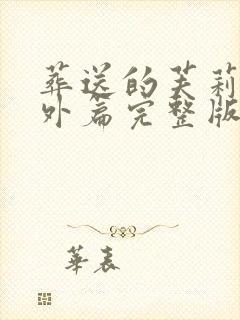 葬送的芙莉
外篇完整版
華表